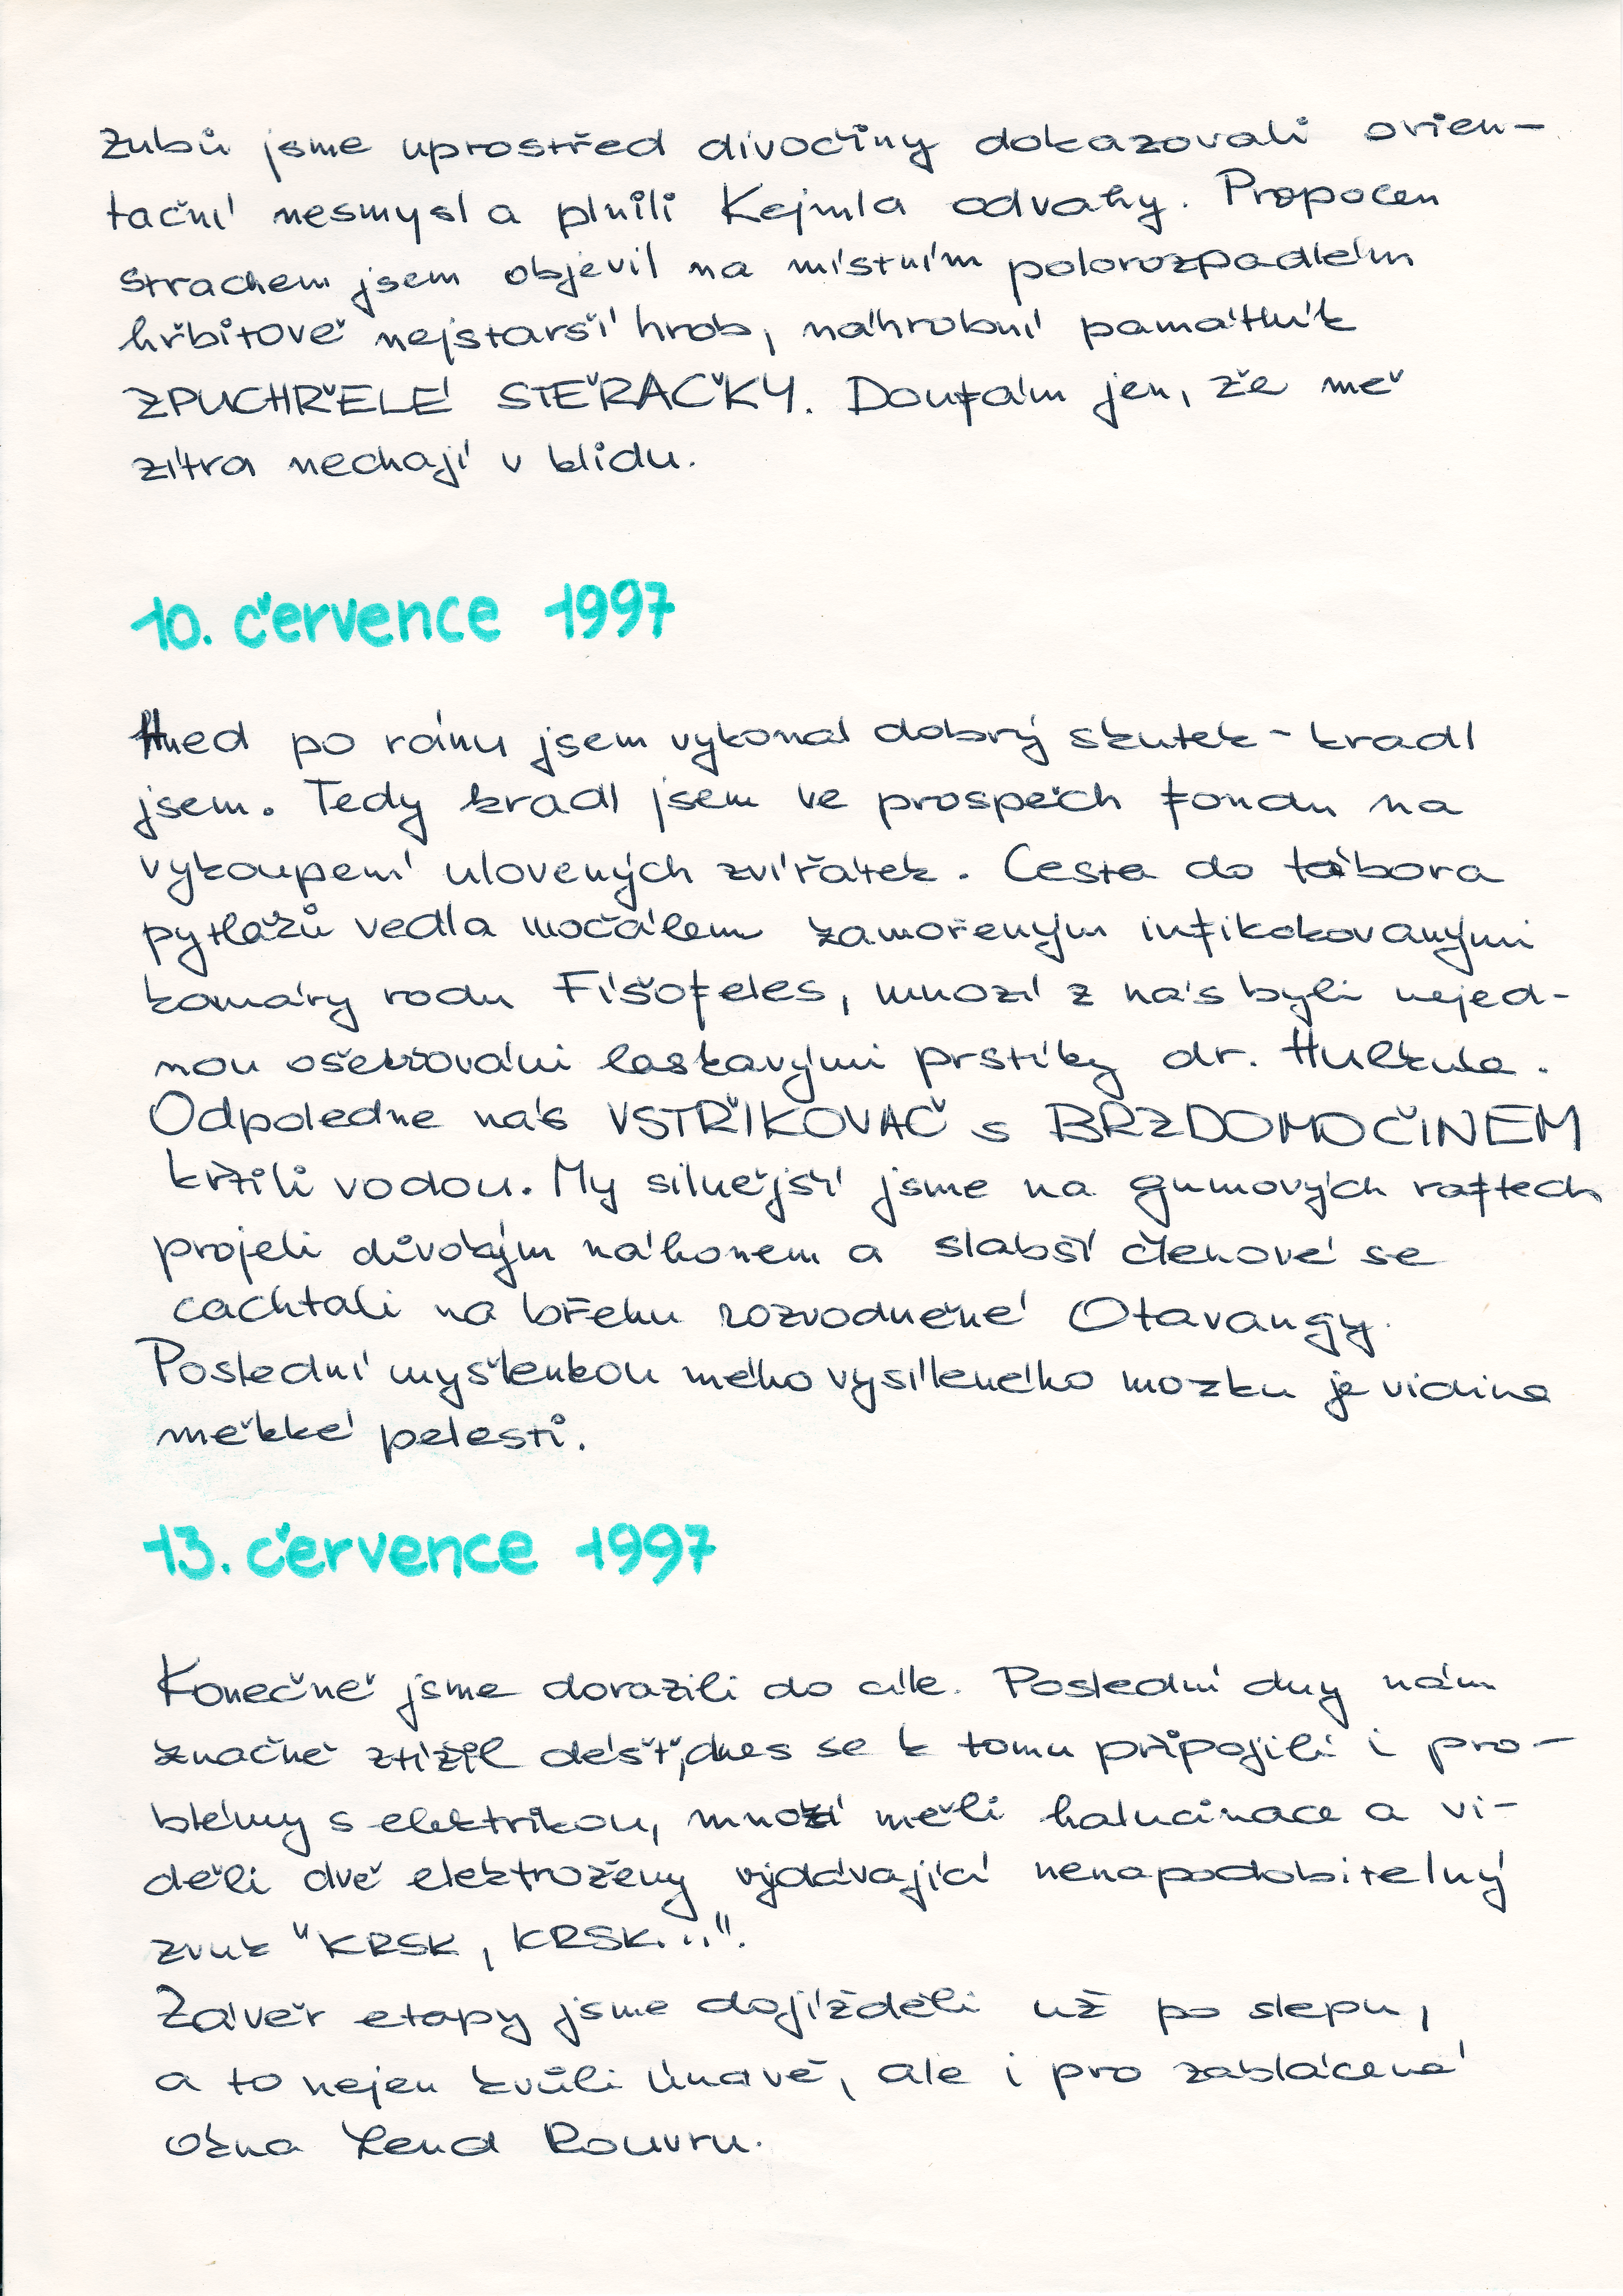 zubů jsme uprostřed divočiny dokazovali orien-
tační nesmysl a plnili Kejmla odvahy. Propocen
strachem jsem objevil na místním polorozpadlém
hřbitově nejstarší hrob, náhrobní památník
ZPUCHŘELÉ STĚRAČKY. Doufám jen, že mě
zítra nechají v klidu.
10. července 1997
Hned po ránu jsem vykonal dobrý skutek - kradl
jsem. Tedy kradl jsem ve prospěch fondu na
vykoupení ulovených zvířátek. Cesta do tábora
pytláků vedla močálem zamořeným infikokovanými
komáry rodu Fíšofeles, mnozí z nás byli nejed-
nou ošetřováni laskavými prstíky dr. Hulkula.
Odpoledne nás VSTŘIKOVAČ s BRZDOMOČINEM
křtili vodou. My silnější jsme na gumových raftech
projeli divokým náhonem a slabší členové se
cachtali na břehu rozvodněné Otavangy.
Poslední myšlenkou mého vysíleného mozku je vidina
měkké pelesti.
13. července 1997
Konečně jsme dorazili do cíle. Poslední dny nám
značně ztížil déšť, dnes se k tomu připojili i pro-
blémy s elektrikou, mnozí měli halucinace a vi-
děli dvě elektroženy vydávající nenapodobitelný
zvuk "KRSK, KRSK...".
Závěr etapy jsme dojížděli už po slepu,
a to nejen kvůli únavě, ale i pro zablácená
okna Lend Rouvru.